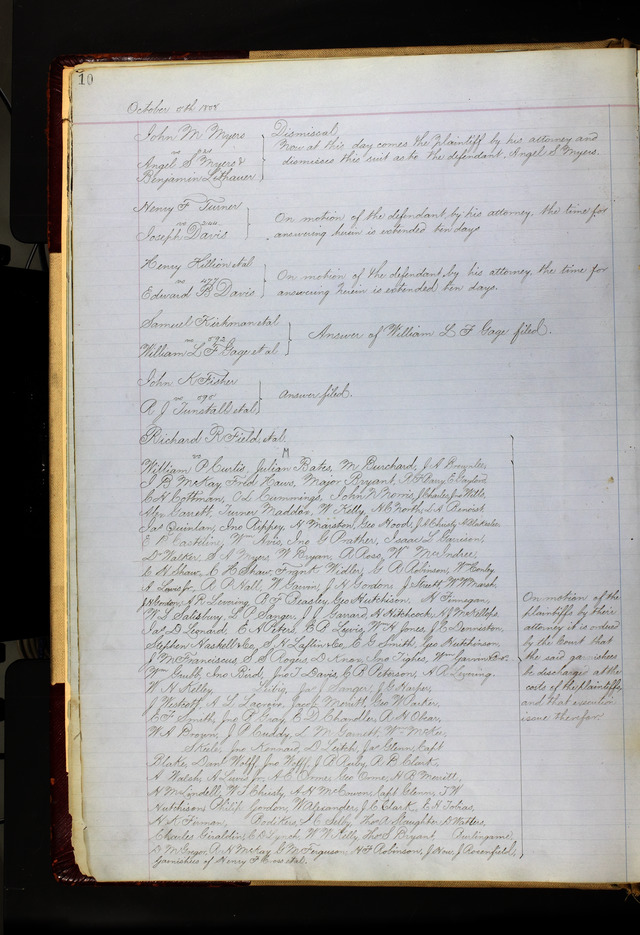 10
October 8th 1858
John M Myers
vs
Angel S Myers &
Benjamin Lithauer
Dismissal,
Now at this day comes the plaintiff by his attorney and
dismisses this suit as to the defendant, Angel S. Myers.
Henry F Turner
vs
Joseph Davis
On motion of the defendant by his attorney, the time for
answering herein is extended ten days
Henry Hillion et al
vs
Edward B Davis
On motion of the defendant by his attorney, the time for
answering herein is extended ten days.
Samuel Kirkman et al
vs 892
William L F Gage et al
Answer of William L F Gage filed.
John K Fisher
vs 898
A J Tunstall et al
Answer filed.
Richard R Field et al
vs
William P Curtis, Julian Bates, M Burchard, J A Brownlee,
J B McKay, Fred Haws, Major Bryant,
C H Cottman, O D Cummings, John W Norris, J Charles, Jno Wills
Garrett, Turner Maddox, W Kelly, H C North, L A Benoist
Jas Quinlan, Jno Rippey, N Marston, Geo Hood, J A Christy,
E W Castelin, Wm Avis, Jno G Prather, Isaac L Garrison,
Dr Walker, S A Myers, W Bryan, A Ross, Wm
C H Shaw, C H Shaw, Frank Widler, G B Robinson, W Conley
A Lewis Jr, R R Hall, W Gavin, J H Gordon, J Stutt, W W Marsh
J H Gordon, J R Levering, A F Beasley, Geo Hutchison, H Finegan,
W S Salisbury, L P Sanger, J P Garrard, N Hitchcock, A J McKellops,
Jas D Leonard, E H Peters, B P Lewis, W H Jones, J R Denniston,
Stephen Haskell & Co, S H Laflin & Co, E G Smith, Geo Hutchinson,
J M Franciscus, S S Rogers, D Knox, Jno Tighes, Wm
Wm Grubb, Jno Bird, Jno T Davis, C B Peterson, H R Levering,
W H Kelley, Leitig, Jas J Sanger, J C Harper,
J Westcoff, A L Lacroix, Jacob Merritt, Geo W Parker,
C F Smith, Jno P Gray, B D Chandler, R H Obar,
W A Brown, J P Cuddy, L M Garnett, Wm McKee,
Skeele, Jno Kennard, D Leitch, Jas Glenn, Capt
Blake, Danl Wolff, Jno Wolff, J R Ruby, A B Clark,
A Walsh, A Lewis Jr, A E Orme, Geo Orme, H B Merritt,
H M Lindell, W S Christy, A H McCown, Capt Glenn, J W
Hutchison, Philip Gordon, W Alexander, J C Clark, E H Tobias,
H K Firman, Roderers, L C Selby, Thos A Slaughter, D Watters,
Charles Giraldin, E D Lynch, W W Kelly, Thos S Bryant, Burlingame,
D McGregor, A H McKay, G M Ferguson, H F Robinson, J How, J Rosenfield,
Garnishees of Henry F Cross et al.
On motion of the
plaintiffs by their
attorney it is ordered
by the Court that
the said garnishees
be discharged at the
costs of the plaintiffs,
and that execution
issue therefor.